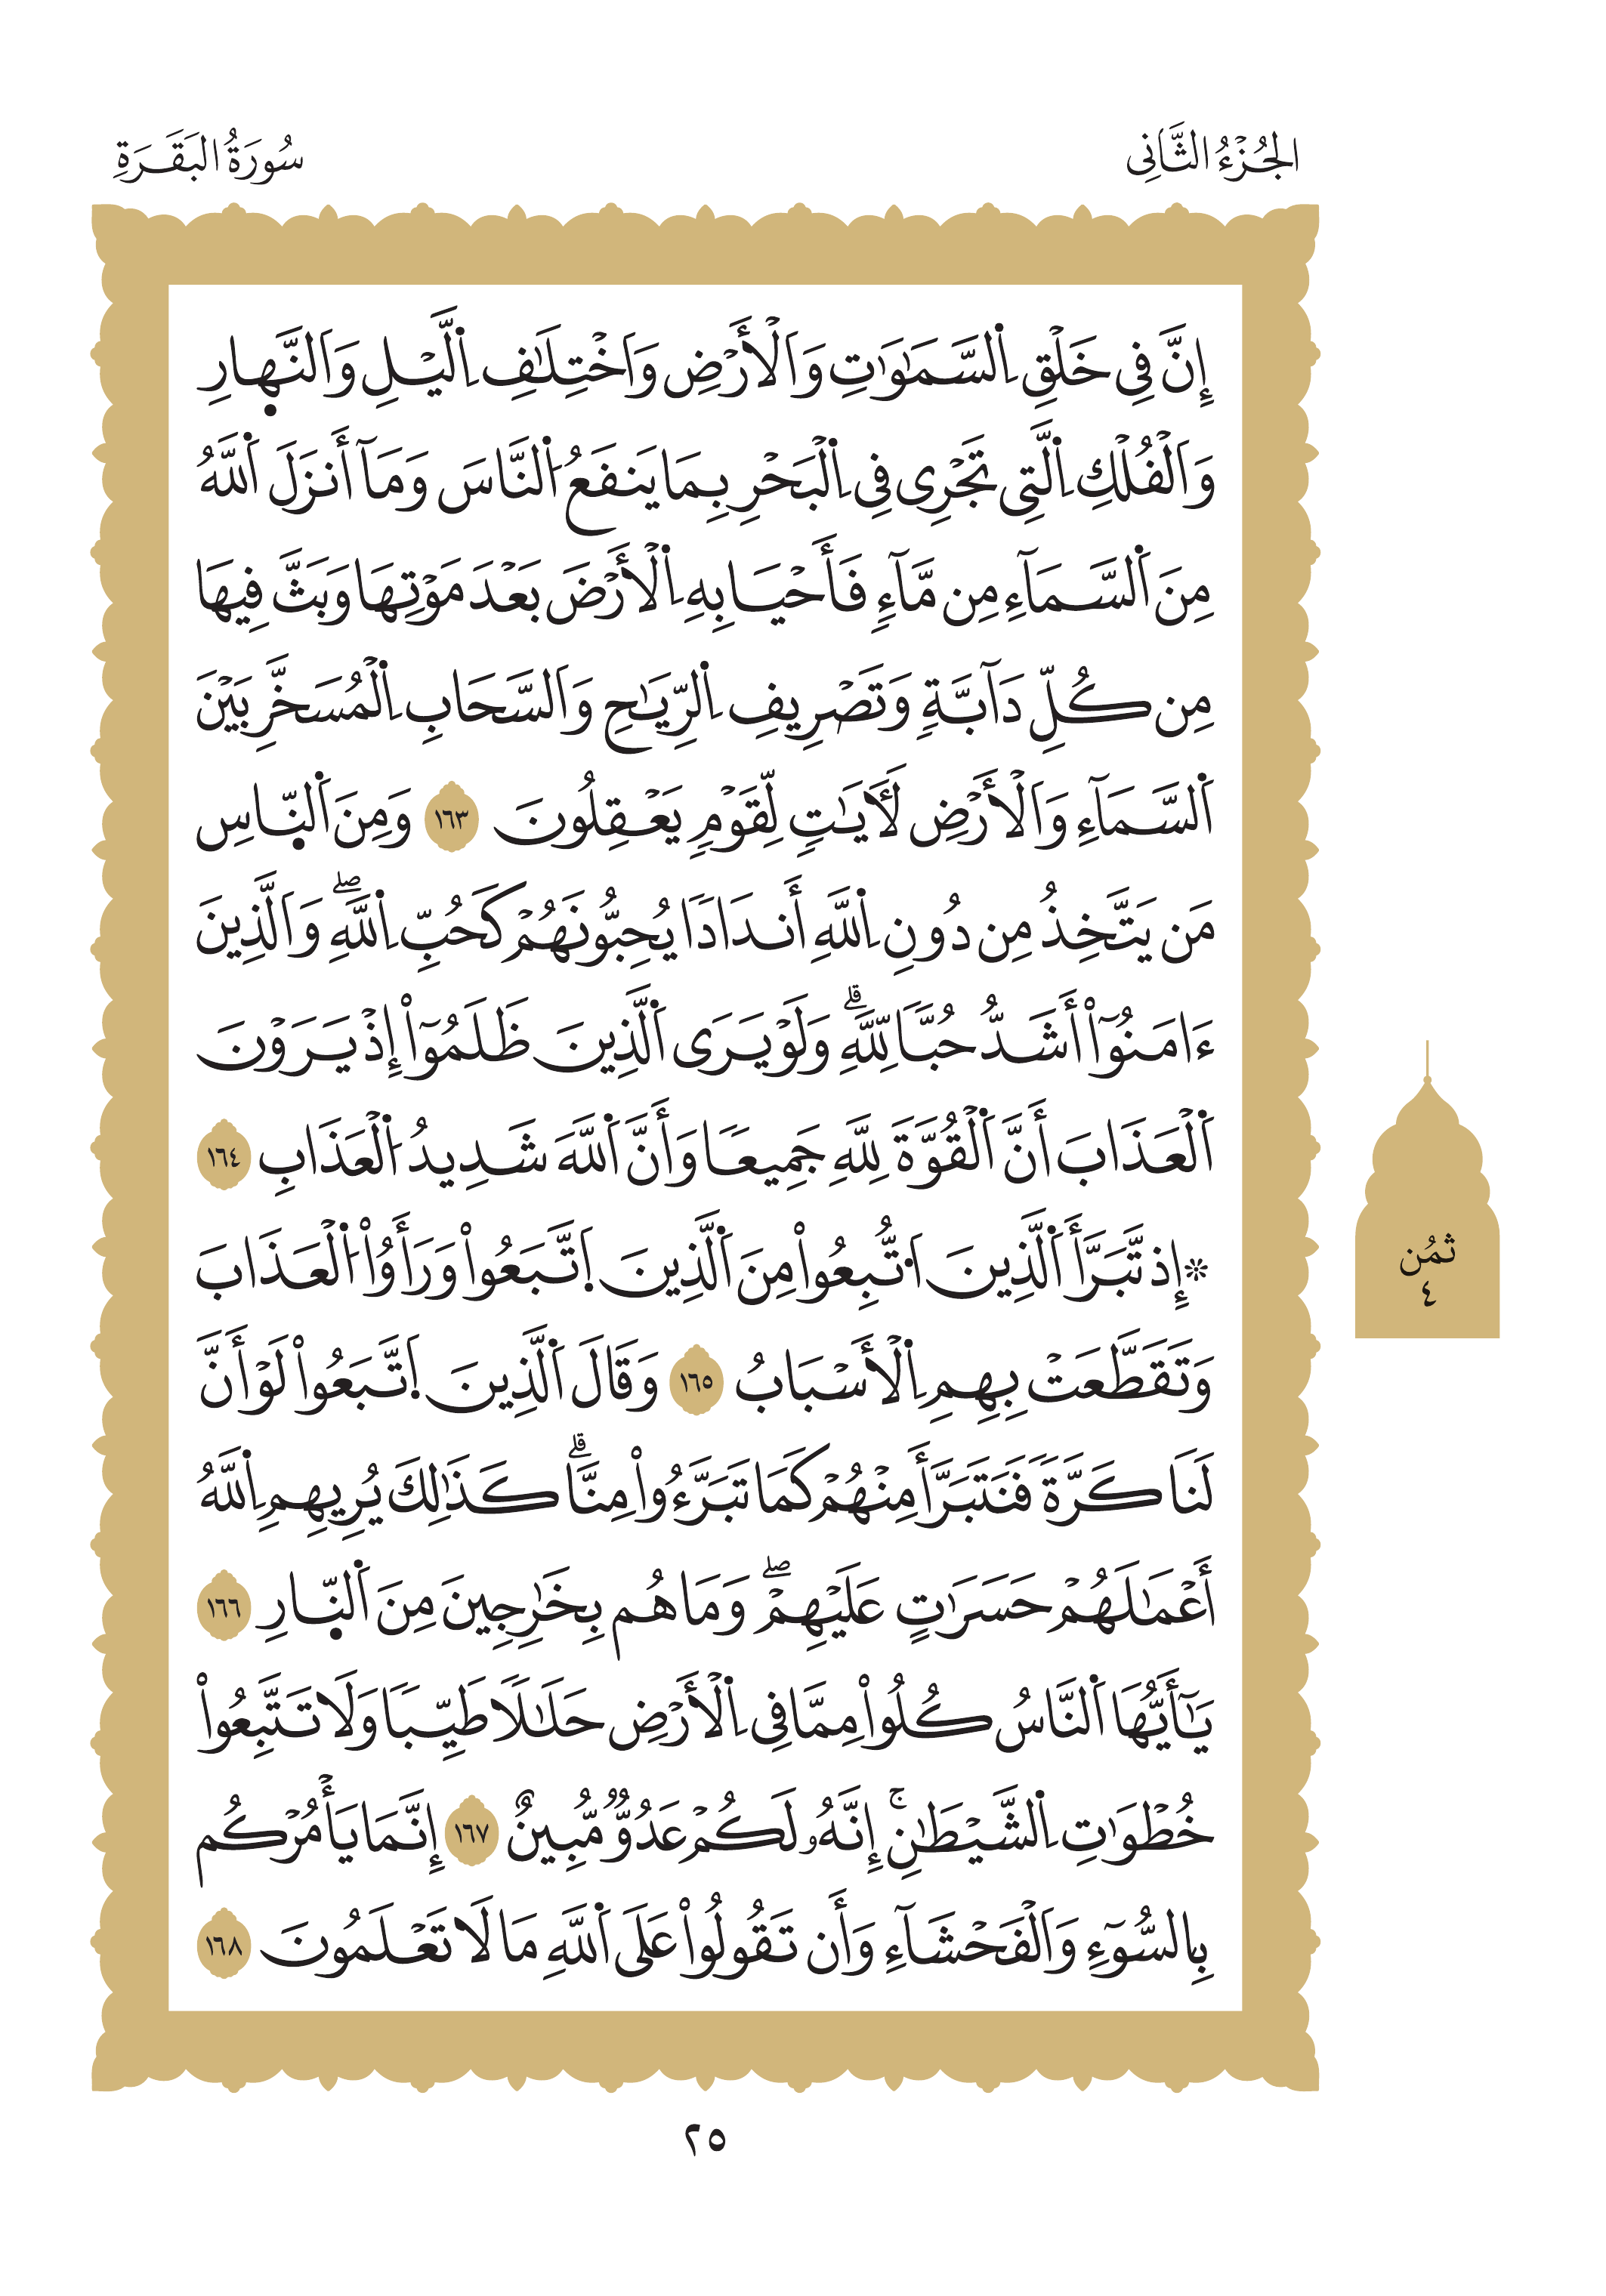 الجُزْءُ الثَّانِى
سُورَةُ البَقَرَةِ
إِنَّ فِى خَلْقِ اِ۬لسَّمَٰوَٰتِ وَالَارْضِ وَاَخْتِلَٰفِ اِ۬لَّيْلِ وَالنَّهٜارِ
وَالْفُلْكِ اِ۬لَّتِى تَجْرِى فِى اِ۬لْبَحْرِ بِمَا يَنفَعُ اُ۬لنَّاسَ وَمَآ أَنزَلَ اَ۬للَّهُ
مِنَ اَ۬لسَّمَآءِ مِن مَّآءٍ فَأَحْيَا بِهِ اِ۬لْأَرْضَ بَعْدَ مَوْتِهَا وَبَثَّ فِيهَا
مِن كُلِّ دَآبَّةٍ وَتَصْرِيفِ اِ۬لرِّيَٰحِ وَالسَّحَابِ اِ۬لْمُسَخَّرِ بَيْنَ
اَ۬لسَّمَآءِ وَالْأَرْضِ لَأٓيَٰتٍ لِّقَوْمٍ يَعْقِلُونَ ١٦٣ وَمِنَ اَ۬لنّٜاسِ
مَن يَتَّخِذُ مِن دُونِ اِ۬للَّهِ أَندَادًا يُحِبُّونَهُمْ كَحُبِّ اِ۬للَّهِۖ وَالَّذِينَ
ءَامَنُوٓاْ أَشَدُّ حُبًّا لِّلَّهِۗ وَلَوْ يَرَى اَ۬لَّذِينَ ظَلَمُوٓاْ إِذْ يَرَوْنَ
اَ۬لْعَذَابَ أَنَّ اَ۬لْقُوَّةَ لِلَّهِ جَمِيعًا وَأَنَّ اَ۬للَّهَ شَدِيدُ اُ۬لْعَذَابِ ١٦٤
۞إِذ تَّبَرَّأَ اَ۬لَّذِينَ اَ۟تُّبِعُواْ مِنَ اَ۬لَّذِينَ اَ۪تَّبَعُواْ وَرَأَوُاْ اُ۬لْعَذَابَ
وَتَقَطَّعَتْ بِهِمِ اِ۬لْأَسْبَابُ ١٦٥ وَقَالَ اَ۬لَّذِينَ اَ۪تَّبَعُواْ لَوْ أَنَّ
لَنَا كَرَّةً فَنَتَبَرَّأَ مِنْهُمْ كَمَا تَبَرَّءُواْ مِنَّاۗ كَذَٰلِكَ يُرِيهِمِ اِ۬للَّهُ
أَعْمَٰلَهُمْ حَسَرَٰتٍ عَلَيْهِمْۖ وَمَا هُم بِخَٰرِجِينَ مِنَ اَ۬لنّٜارِ ١٦٦
يَٰٓأَيُّهَا اَ۬لنَّاسُ كُلُواْ مِمَّا فِى اِ۬لْأَرْضِ حَلَٰلًا طَيِّبًا وَلَا تَتَّبِعُواْ
خُطْوَٰتِ اِ۬لشَّيْطَٰنِۚ إِنَّهُۥ لَكُمْ عَدُوٌّ مُّبِينٌ ١٦٧ إِنَّمَا يَأْمُرْكُم
بِالسُّوٓءِ وَالْفَحْشَآءِ وَأَن تَقُولُواْ عَلَى اَ۬للَّهِ مَا لَا تَعْلَمُونَ ١٦٨
ثمُن
٤
٢٥